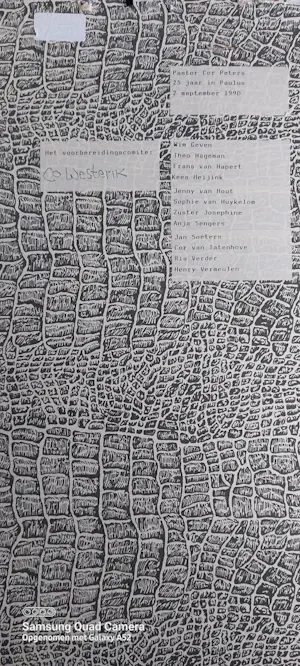 Pastor Cor Peters
25 jaar in Paulus
2 september 1990
Het voorbereidingscomite:
Co Westerik
Wim Geven
Theo Hageman
Frans van Hapert
Kees Heijink
Jenny van Hout
Sophie van Huykelom
Zuster Josephine
Anja Sengers
Jan Soeters
Cor van Tatenhove
Ria Verder
Henry Vermeulen
Samsung Quad Camera
Opgenomen met Galaxy A52